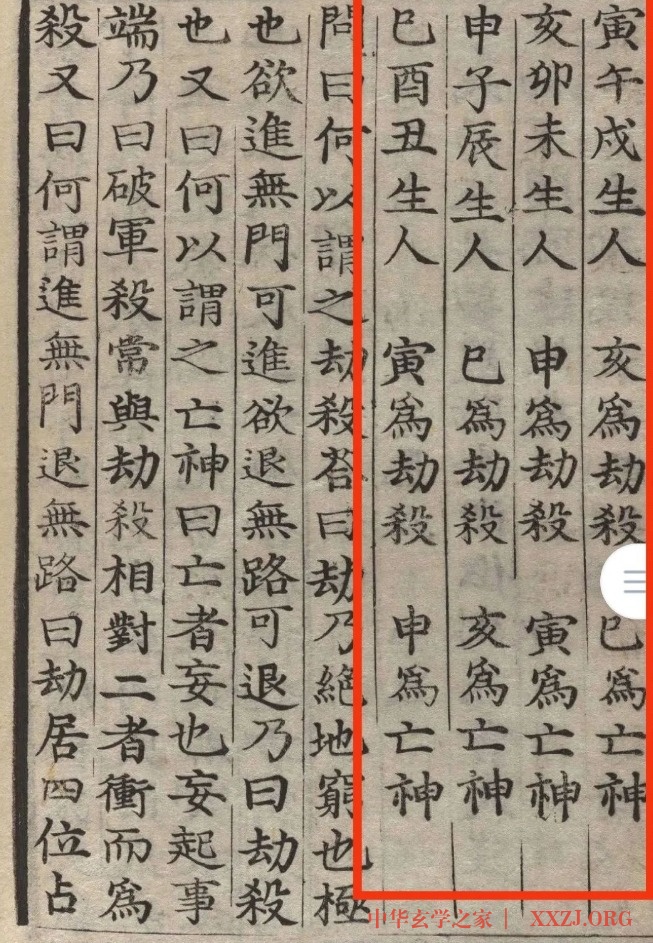 寅午戌生人　亥爲劫殺　巳爲亡神
亥卯未生人　申爲劫殺　寅爲亡神
申子辰生人　巳爲劫殺　亥爲亡神
巳酉丑生人　寅爲劫殺　申爲亡神
問曰何以謂之劫殺荅曰劫乃絕地窮也極
也欲進無門可進欲退無路可退乃曰劫殺
也又曰何以謂之亡神曰亡者妄也妄起事
端乃曰破軍殺常與劫殺相對二者衝而爲
殺又曰何謂進無門退無路曰劫居四位占
中华玄学之家｜ XXZJ.ORG